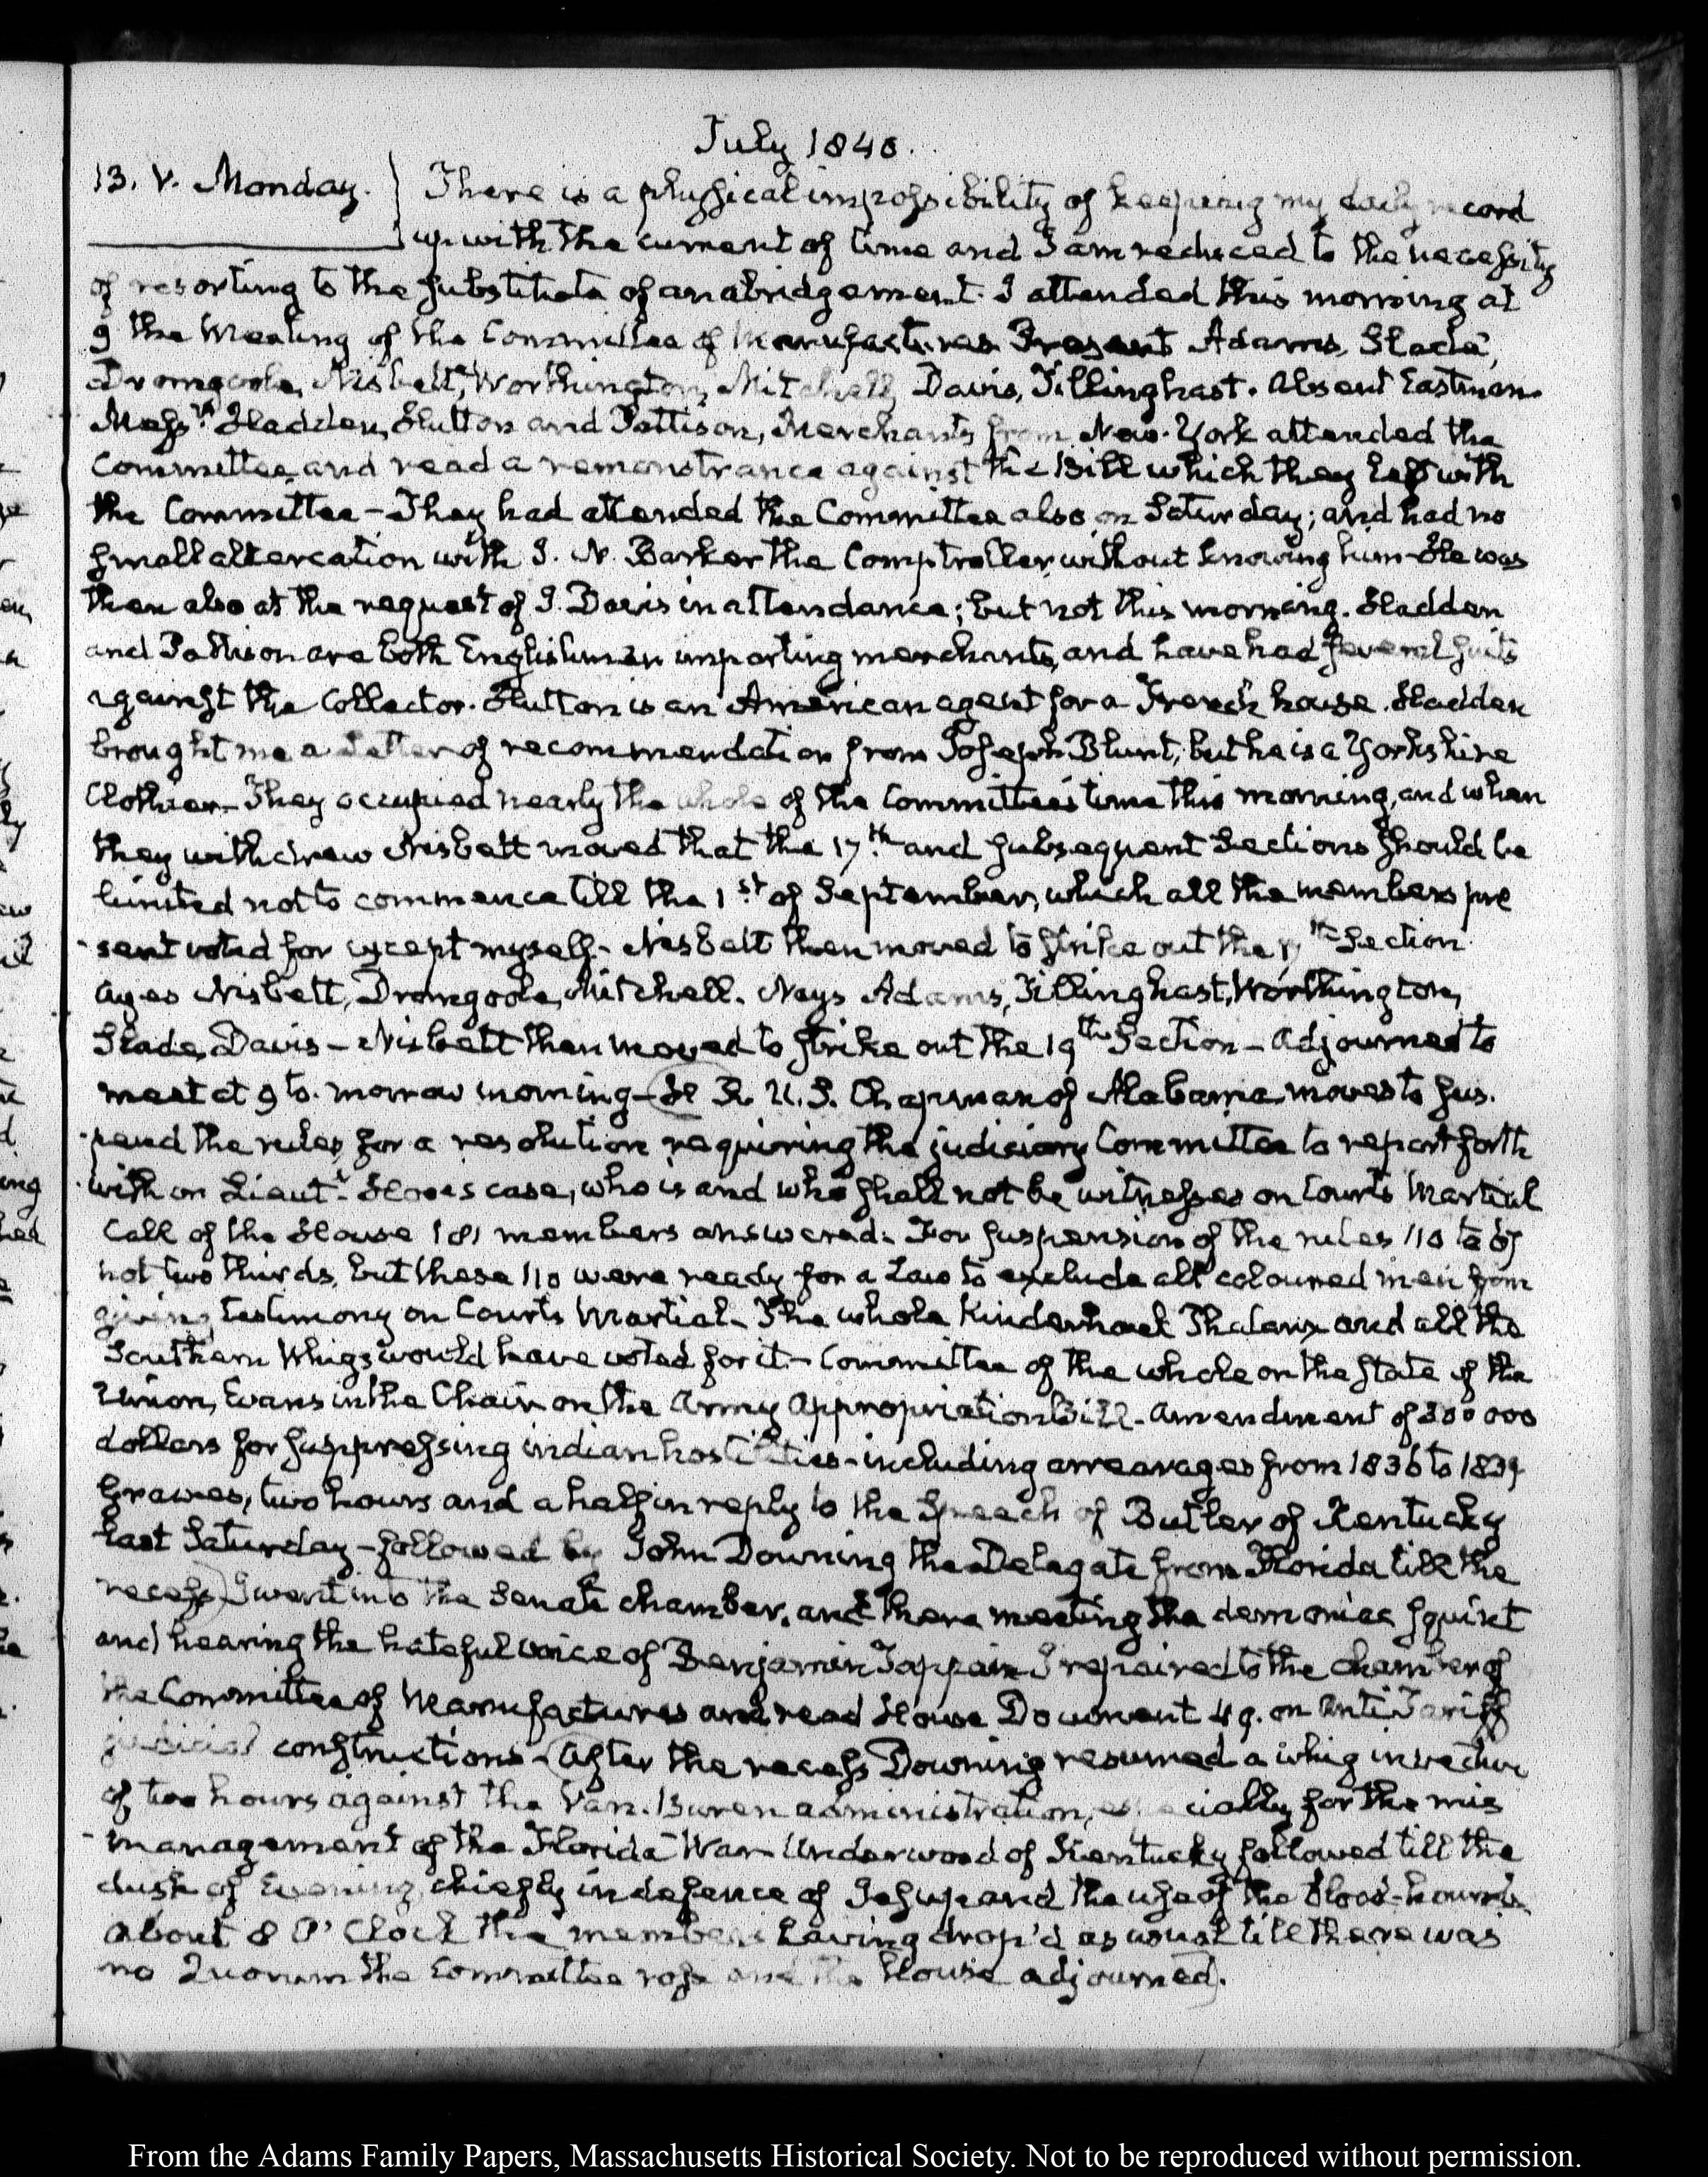 July 1840.
13. V. Monday. There is a physical impossibility of keeping my daily record
up with the current of time and I am reduced to the necessity
of resorting to the substitute of an abridgement. I attended this morning at
9 the Meeting of the Committee of Manufactures Present Adams, Slade,
Dromgoole, Nisbett, Worthington, Mitchell, Davis, Tillinghast. Absent Eastman.
Messrs. Hadden, Hutton and Pattison, Merchants from New-York attended the
Committee, and read a remonstrance against the Bill which they left with
the Committee – They had attended the Committee also on Saturday; and had no
small altercation with J. N. Barker the Comptroller, without knowing him – He was
then also at the request of J. Davis in attendance; but not this morning. Hadden
and Pattison are both Englishmen importing merchants, and have had several suits
against the Collector. Hutton is an American agent for a French house. Hadden
brought me a Letter of recommendation from Joseph Blunt; but he is a Yorkshire
Clothier – They occupied nearly the whole of the Committee's time this morning, and when
they withdrew Nisbett moved that the 17th. and subsequent Sections should be
limited not to commence till the 1st. of September, which all the members pre
-sent voted for except myself – Nisbett then moved to strike out the 17th Section
Ayes Nisbett, Dromgoole, Mitchell. Nays Adams, Tillinghast, Worthington,
Slade, Davis – Nisbett then moved to strike out the 19th Section – Adjourned to
meet at 9 to-morrow morning – H. R. U. S. Chapman of Alabama moves to sus-
-pend the rules, for a resolution requiring the judiciary Committee to report forth
-with on Lieutt. Hooe's case, who is and who shall not be witnesses on Courts Martial
Call of the House 181 members answered. For suspension of the rules 110 to 67
not two thirds, but these 110 were ready for a Law to exclude all coloured men from
giving testimony on Courts Martial – The whole Kinderhook Phalanx and all the
Southern Whigs would have voted for it – Committee of the whole on the state of the
Union, Evans in the Chair on the Army Appropriation Bill – Amendment of 300 000
dollars for suppressing indian hostilities – including arrearages from 1836 to 1839
Graves, two hours and a half in reply to the Speech of Butler of Kentucky
last Saturday – followed by John Downing the Delegate from Florida till the
recess) I went into the Senate chamber, and there meeting the demoniac squint
and hearing the hateful voice of Benjamin Tappan I repaired to the chamber of
the Committee of Manufactures and read House Document 49. on Anti Tariff
judicial constructions – (After the recess Downing resumed a whig invective
of two hours against the Van-Buren administration, especially for the mis
-management of the Florida War – Underwood of Kentucky followed till the
dusk of Evening, chiefly in defence of Jesup and the use of the blood-hounds
about 8 O'Clock the members having drop'd as usual till there was
no Quorum the Committee rose and the House adjourned).
From the Adams Family Papers, Massachusetts Historical Society. Not to be reproduced without permission.